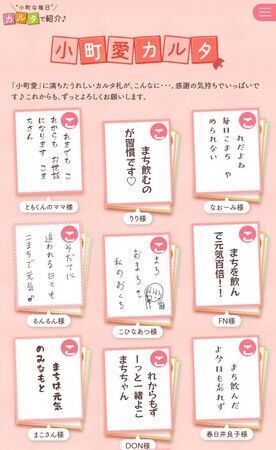 "小町な毎日"
カルタで紹介♪
小町愛カルタ
「小町愛」に満ちたうれしいカルタ札が、こんなに･･･。感謝の気持ちでいっぱいで
す♪これからも、ずっとよろしくお願いします。
こ
れまでも こ
れからも お世話
になります こま
ちさん
ともくんのママ様
こ
まち飲むの
が習慣です♡
りり様
こ
れだよね
毎日こまち や
められない
なおーみ様
こ
そだてに
追われる日々も
こまちで元気
るんるん様
こ
まち
おまちな
私のおくち
こひなあつ様
こ
まちを飲ん
で元気百倍！！
FN様
こ
まちは元気
のみなもと
まこさん様
こ
れからもず
ーっと一緒よこ
まちちゃん
DON様
こ
まち飲んだ
よ今日も忘れず
春日井良子様